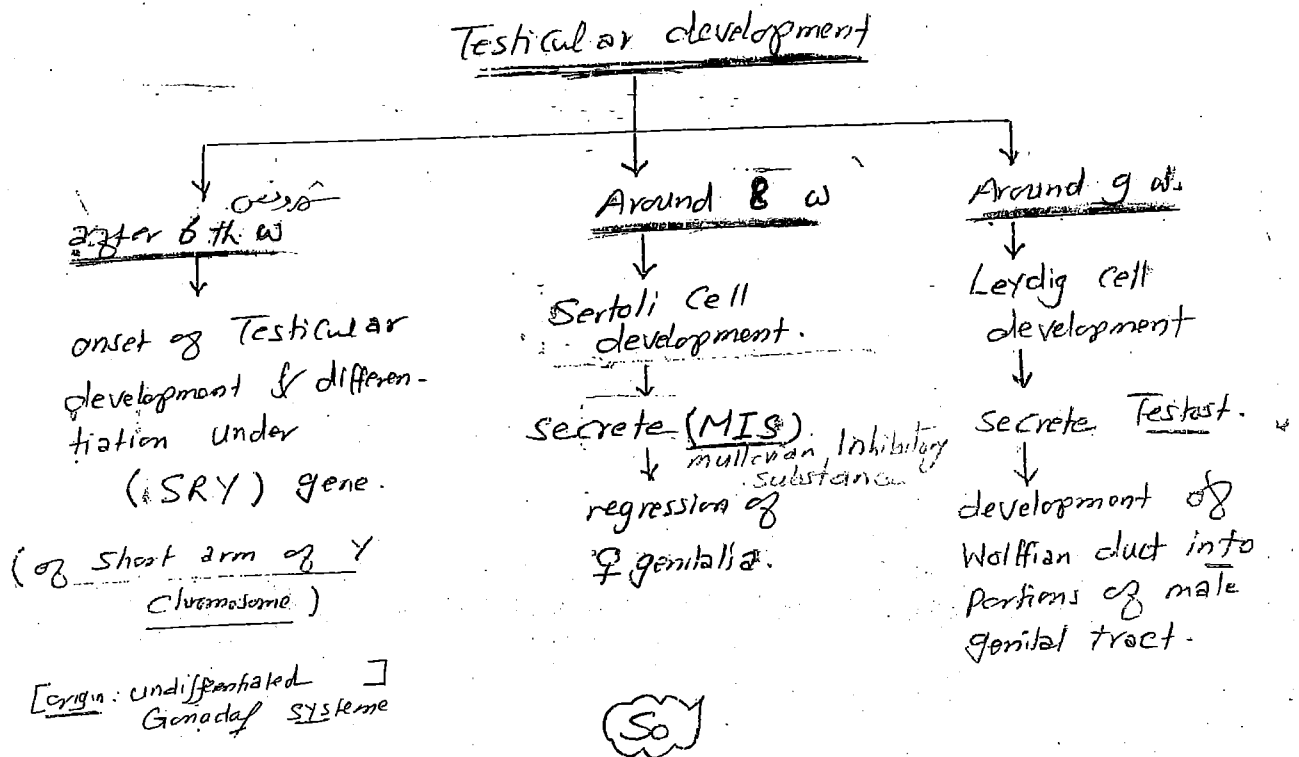 Testicular development
after 6 th w
onset of Testicular
development & differen-
tiation under
(SRY) gene.
(of short arm of Y
Chromosome)
[origin: undiffentiated ]
Gonadal systeme
Around 8 w
Sertoli Cell
development.
secrete (MIS)
mullerian Inhibitory
substance
regression of
♀ genitalia.
Around 9 w.
Leydig cell
development
secrete Testost.
development of
Wolffian duct into
portions of male
genital tract.
So